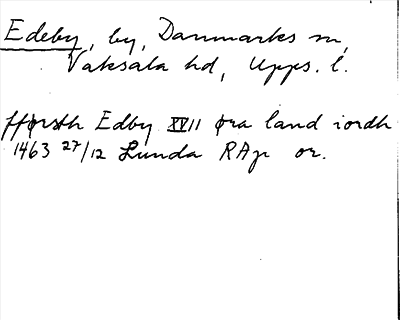 Edeby, by, Danmarks sn,
Vaksala hd, Upps. l.
fførsth Edby XVII øra land iordh
1463 27/12 Lunda RAp or.